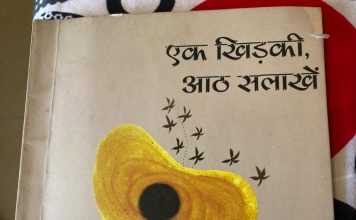 एक खिड़की,
आठ सलाखें